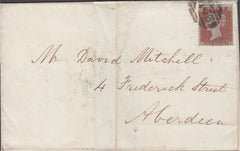 Mr David Mitchell
4 Frederick Street
Aberdeen